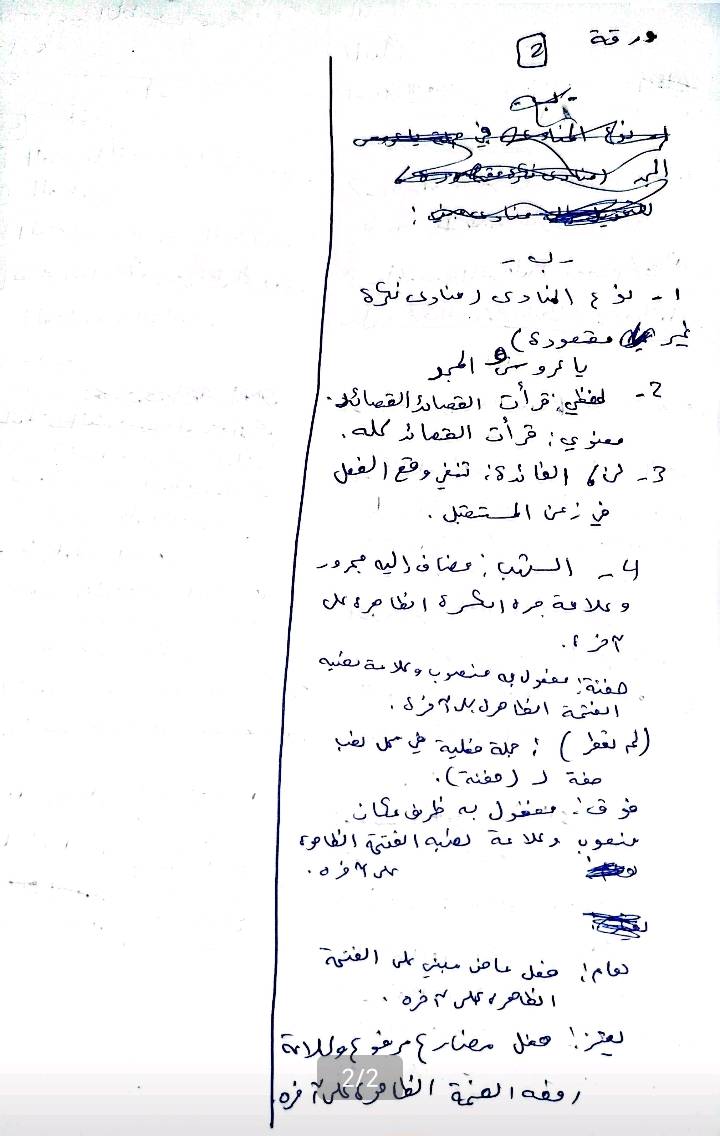 ورقة
2
نوع المنادى في
المجد
- ب -
1 - نوع المنادى (منادى نكرة
غير مقصودة)
يا عروس المجد
2 - لفظي: قرأت القصائد القصائد.
معنوي: قرأت القصائد كله.
3 - لن، الفائدة: تنفي وقع الفعل
في زمن المستقبل.
4 - الشهب: مضاف إليه مجرور
وعلامة جره الكسرة الظاهرة على
آخره.
حفنة: مفعول به منصوب وعلامة نصبه
الفتحة الظاهرة على آخره.
(لم تعطر): جملة فعلية في محل نصب
صفة لـ (حفنة).
فوق: مفعول به ظرف مكان
منصوب وعلامة نصبه الفتحة الظاهرة
على آخره.
فعل ماض مبني على الفتحة
الظاهرة على آخره.
فعل مضارع مرفوع وعلامة
رفعه الضمة الظاهرة على آخره.
2/2